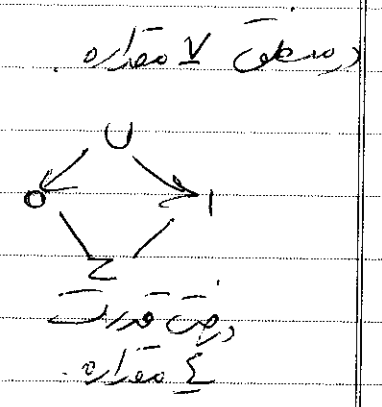 در منطق ۷ مقداره.
U
0 1
Z
درخت قدرت
٤ مقداره.